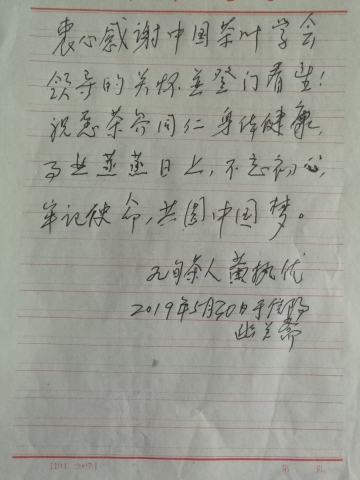 衷心感谢中国茶叶学会
领导的关怀并登门看望!
祝愿茶界同仁身体健康,
事业蒸蒸日上,不忘初心,
牢记使命,共圆中国梦。
九旬茶人黄执优
2019年5月30日于信阳
第 页